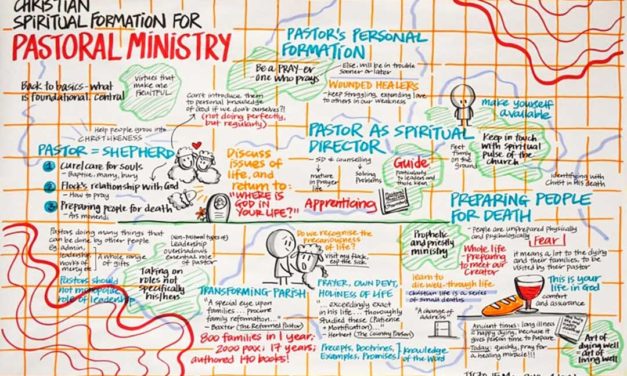 CHRISTIAN
SPIRITUAL FORMATION FOR
PASTORAL MINISTRY
Back to basics - what
is foundational, central
virtues that
make me
FRUITFUL
Help people grow into
CHRISTLIKENESS
PASTOR = SHEPHERD
1 Cure/care for souls
- Baptise, marry, bury
2 Flock's relationship with God
- How to pray
3 Preparing people for death
- Ars moriendi
Be a PRAY-er
one who prays
Can't introduce them
to personal knowledge
of God if we don't ourselves?!
(not doing perfectly,
but regularly)
Discuss
issues of
life, and
return to:
"WHERE IS
GOD IN
YOUR LIFE?"
PASTOR'S PERSONAL
FORMATION
- Else, will be in trouble
sooner or later
WOUNDED HEALERS
- Keep struggling, extending love
to others in our weakness
PASTOR AS SPIRITUAL
DIRECTOR
- SD & counselling
mature
in prayer
life
Solving
Problems
Guide
particularly
to leaders and
those keen
Apprenticing
make yourself
available
Feet
Firmly
on the
ground
Keep in touch
with spiritual
pulse of the
church
Identifying with
Christ in His death
PREPARING PEOPLE
FOR DEATH
- People are unprepared physically
and psychologically
Fear
Whole life
preparing
to meet our
Creator
it means a lot to the dying
and their families, to be
visited by their pastor
Prophetic
and priestly
ministry
learn to
die well - through life
- Christian life is a series
of small deaths
"A change of
address"
This is your
life in God
comfort
and assistance
Ancient times: long illness
= happy death, because it
gives person time to prepare
Today: quickly, pray for
a healing miracle!!!
Art of
dying well =
art of
living well
Pastors doing many things that
can be done by other people
Eg admin,
leadership,
works of
mercy etc
A whole range
of gifts
Pastors should
not monopolise
role of leadership
Leadership
essential role of
pastor
Taking on
roles not
specifically
his/hers
Do we recognise the
precariousness
of life?
Visit my flock,
esp the sick
TRANSFORMING PARISH
"A special eye upon
families... procure
family reformation..."
- Baxter (The Reformed Pastor)
800 families in 1 year;
2000 pax; 17 years;
authored 140 books!
PRAYER, OWN DEVT,
HOLINESS OF LIFE
"... exceedingly exact
in his life... thoroughly
studied these (Patience
+ Mortification)..."
- Herbert (The Country Parson)
Precepts, Doctrines,
Examples, Promises
knowledge
of the Word